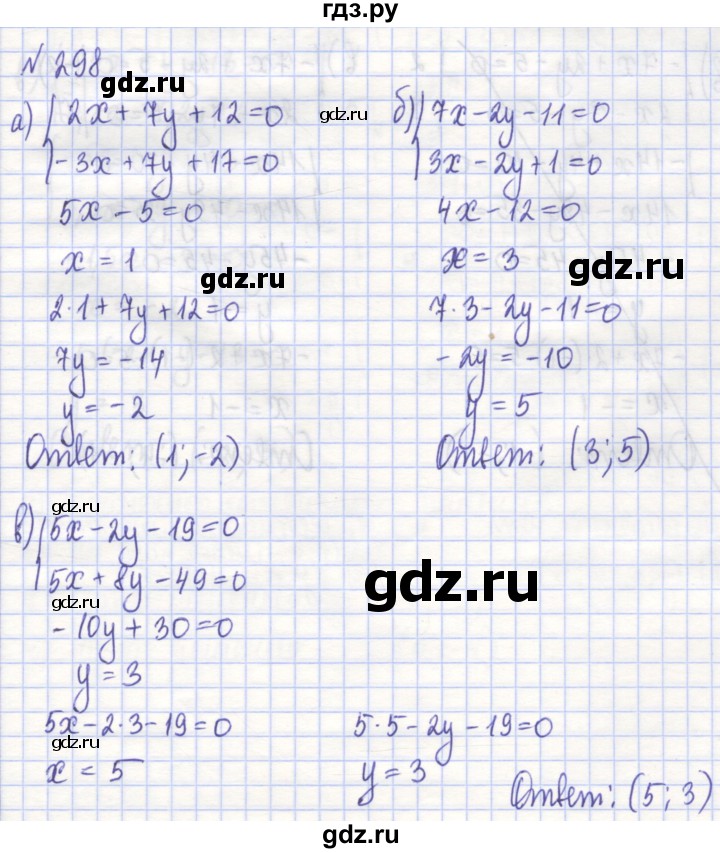 гдз.ру
№ 298
gdz.ru
а) 2x + 7y + 12 = 0
- 3x + 7y + 17 = 0
5x - 5 = 0
x = 1
gdz.ru
2·1 + 7y + 12 = 0
7y = -14
y = -2
Ответ: (1; -2)
gdz.ru
б) 7x - 2y - 11 = 0
3x - 2y + 1 = 0
4x - 12 = 0
x = 3
gdz.ru
7·3 - 2y - 11 = 0
- 2y = -10
y = 5
Ответ: (3; 5)
gdz.ru
в) 5x - 2y - 19 = 0
5x + 8y - 49 = 0
gdz.ru
gdz.ru
- 10y + 30 = 0
y = 3
5x - 2·3 - 19 = 0
gdz.ru
x = 5
5·5 - 2y - 19 = 0
y = 3
Ответ: (5; 3)
gdz.ru